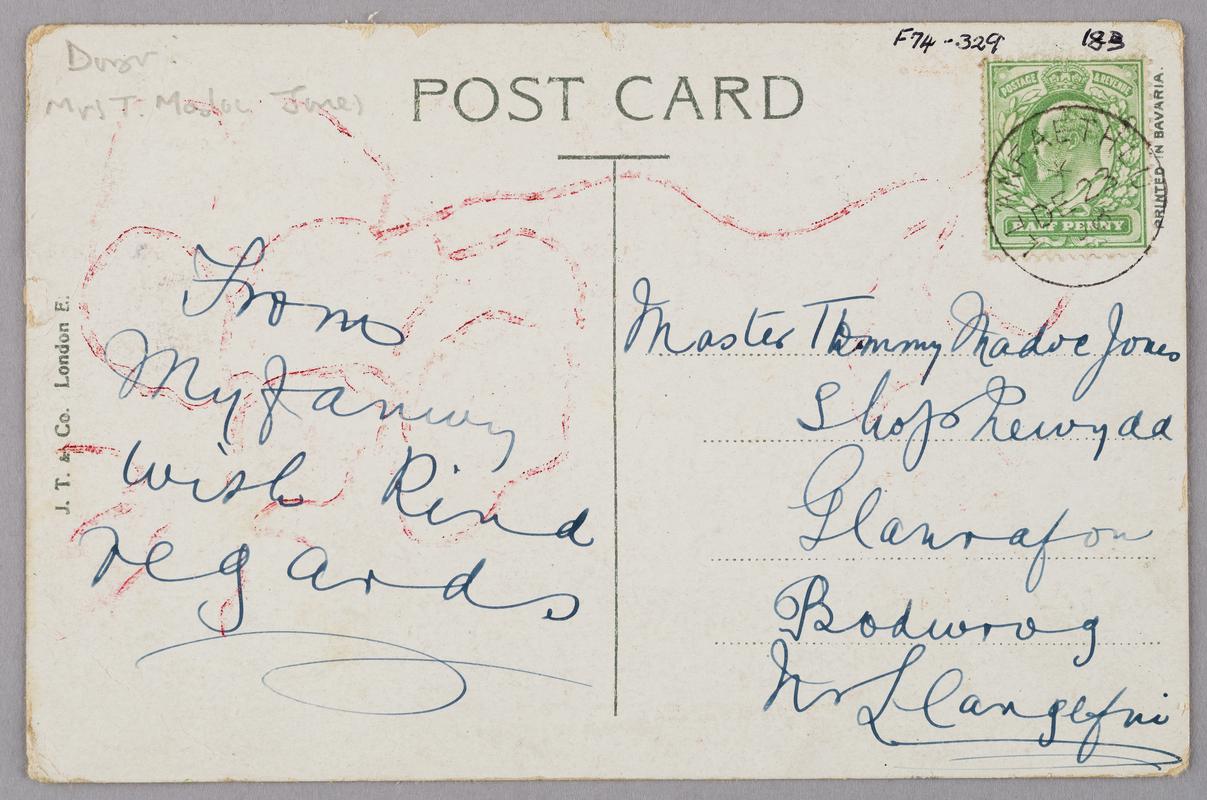 Donor
Mrs T. Madoc Jones
F74-329
183
POST CARD
POSTAGE & REVENUE
HALF PENNY
DE 23
PRINTED IN BAVARIA.
J. T. & Co. London E.
From
Myfanwy
with Kind
regards
Master Tommy Madoc Jones
Shop Newydd
Glanrafon
Bodwrog
Nr Llangefni